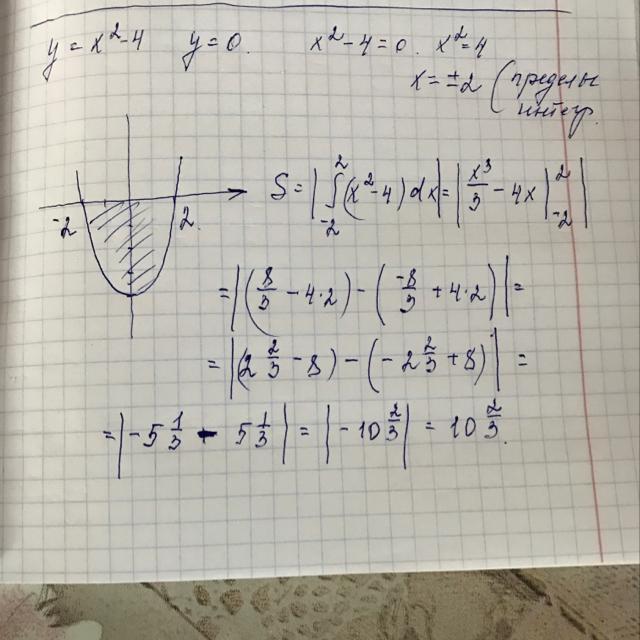 y = x²-4 y = 0. x²-4=0. x²=4
x = ±2 (пределы
интегр.
-2 2
S = |∫₋₂² (x²-4) dx| = |x³/3 - 4x |₋₂²|
= |(8/3 - 4·2) - (-8/3 + 4·2)| =
= |(2 2/3 - 8) - (-2 2/3 + 8)| =
= |-5 1/3 - 5 1/3| = |-10 2/3| = 10 2/3.